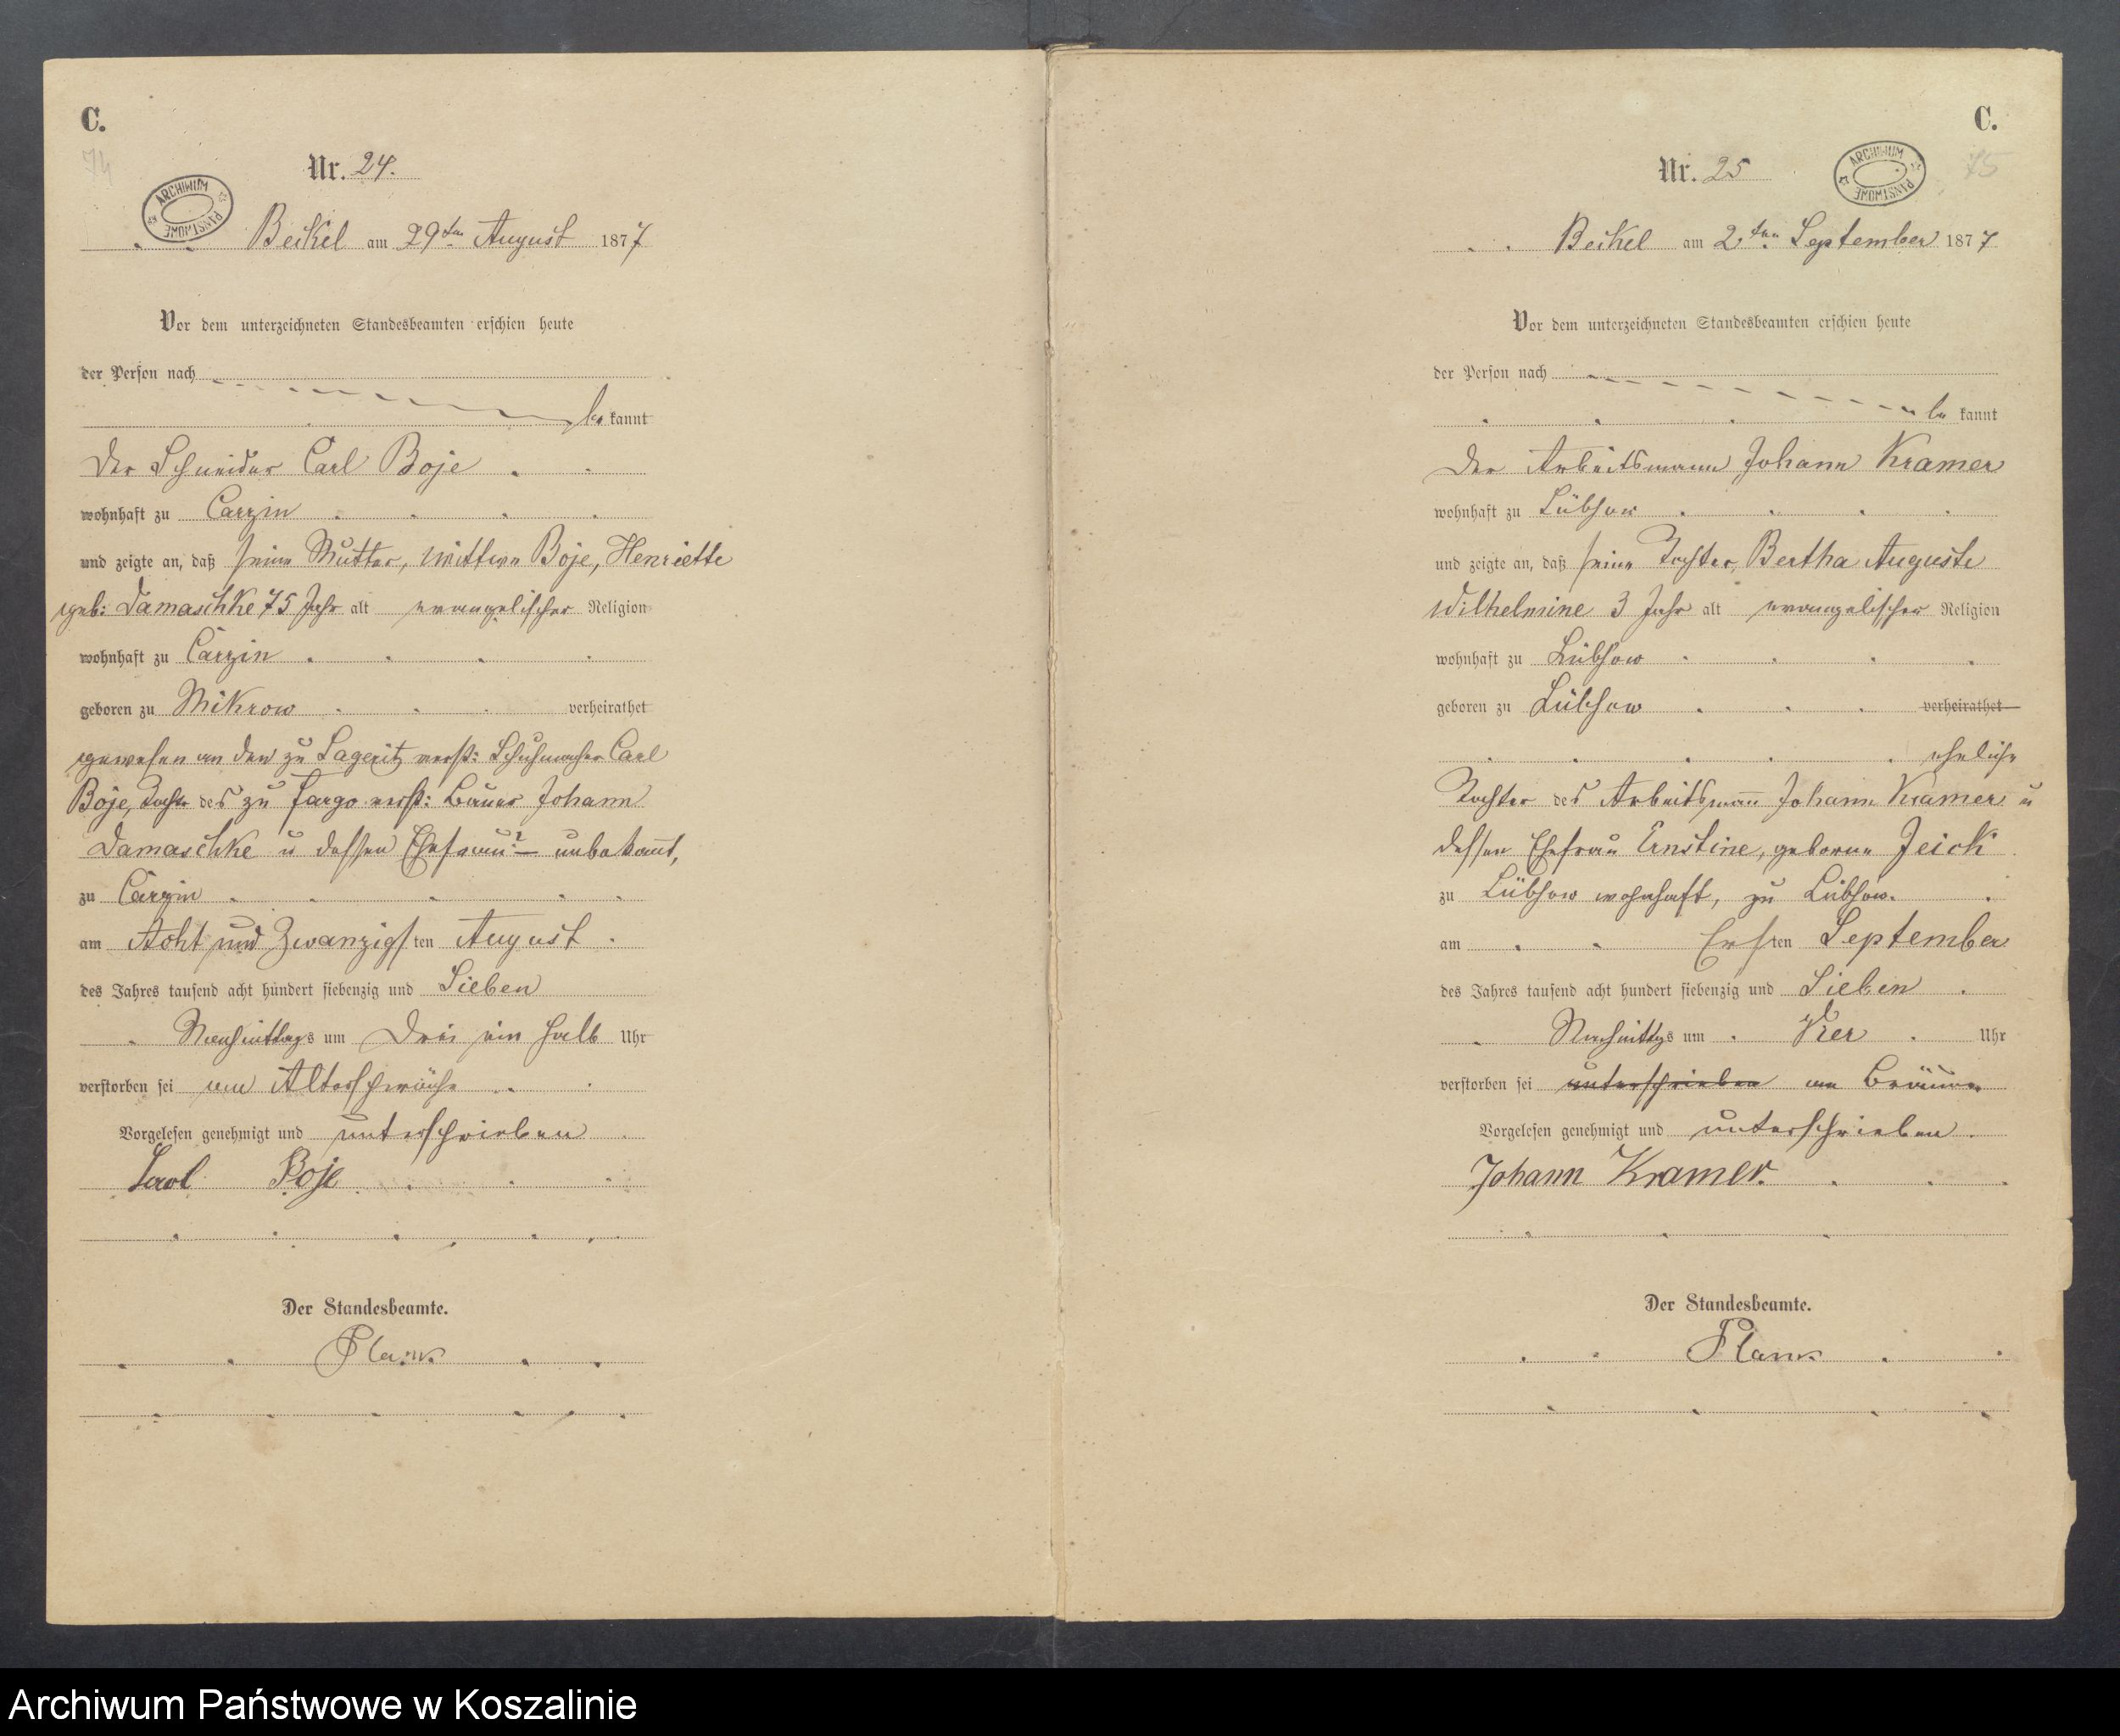 C.
74
Nr. 24.
ARCHIWUM PAŃSTWOWE
Beckel am 29ten August 1877
Vor dem unterzeichneten Standesbeamten erschien heute
der Person nach
be kannt
Der Schneider Carl Boje
wohnhaft zu Carzin
und zeigte an, daß seine Mutter, Wittwe Boje, Henriette
geb: Damaschke 75 Jahr alt evangelischer Religion
wohnhaft zu Carzin
geboren zu Mikrow verheirathet
gewesen an den zu Lageritz verst: Schuhmacher Carl
Boje, Tochter des zu Fargo verst: Bauer Johann
Damaschke u dessen Ehefrau ? — unbekannt,
zu Carzin
am Acht und Zwanzigsten August
des Jahres tausend acht hundert siebenzig und Sieben
Nachmittags um Drei ein halb Uhr
verstorben sei an Altersschwäche
Vorgelesen genehmigt und unterschrieben
Carl Boje
Der Standesbeamte.
C.
75
Nr. 25
ARCHIWUM PAŃSTWOWE
Beckel am 2ten September 1877
Vor dem unterzeichneten Standesbeamten erschien heute
der Person nach
be kannt
Der Arbeitsmann Johann Kramer
wohnhaft zu Lübsow
und zeigte an, daß seine Tochter, Bertha Auguste
Wilhelmine 3 Jahr alt evangelischer Religion
wohnhaft zu Lübsow
geboren zu Lübsow verheirathet
eheliche
Tochter des Arbeitsmann Johann Kramer u
dessen Ehefrau Ernstine, geborne Jeick
zu Lübsow wohnhaft, zu Lübsow.
am Ersten September
des Jahres tausend acht hundert siebenzig und Sieben
Nachmittgs um Vier Uhr
verstorben sei unterschrieben an Bräune
Vorgelesen genehmigt und unterschrieben.
Johann Kramer.
Der Standesbeamte.
Archiwum Państwowe w Koszalinie